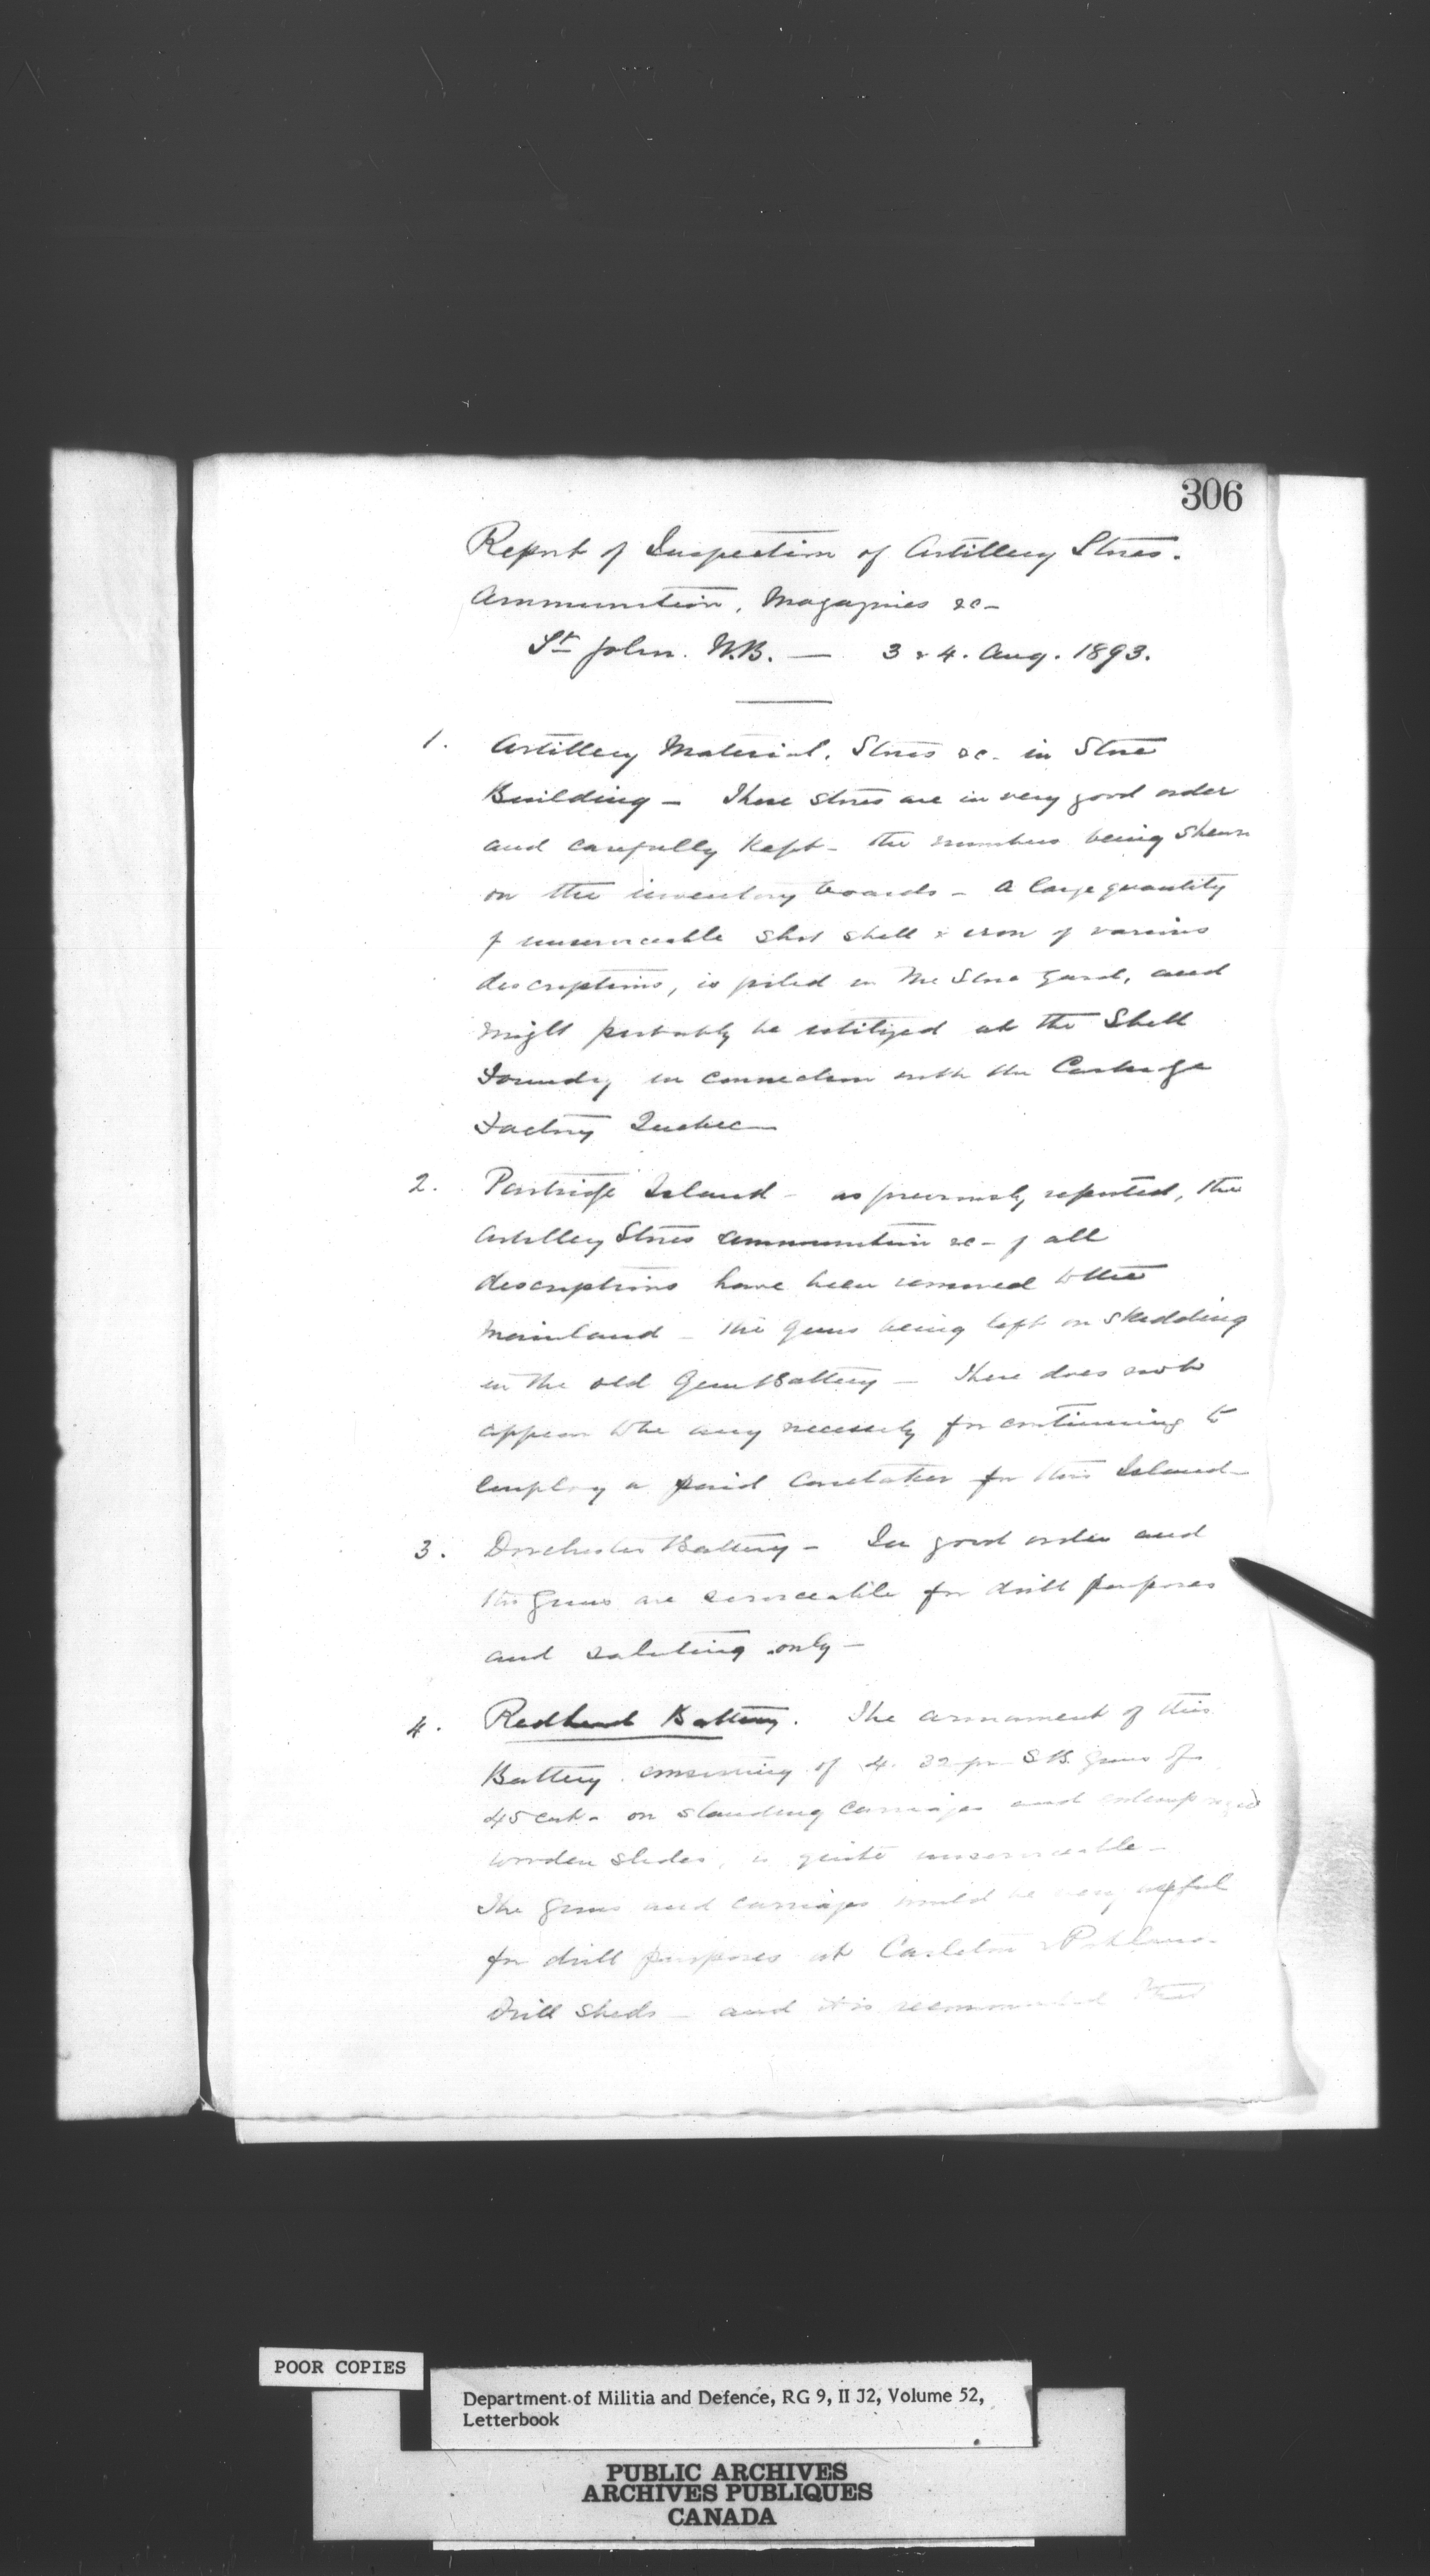 306
Report of Inspection of Artillery Stores.
Ammunition, Magazines &c-
St John. N.B. — 3 & 4. Aug. 1893.
1. Artillery Material. Stores &c. in Store
Building - These stores are in very good order
and carefully kept - the numbers being shewn
on the inventory boards - A large quantity
of unserviceable shot shell & iron of various
descriptions, is piled in the Store Yard, and
might probably be utilized at the Shell
Foundry in connection with the Cartridge
Factory Quebec -
2. Partridge Island - as previously reported, the
Artillery Stores ammunition &c - of all
descriptions have been removed to the
mainland - the guns being left on skidding
in the old Gun Battery - There does not
appear to be any necessity for continuing to
employ a paid Caretaker for this Island -
3. Dorchester Battery - In good order and
the guns are serviceable for drill purposes
and saluting only -
4. Redhead Battery. The armament of this
Battery consisting of 4. 32 pr S.B. guns of
45 cwt - on standing carriages and
wooden slides, is quite unserviceable -
The guns and carriages would be very useful
for drill purposes at Carleton & Portland
Drill Sheds - and it is recommended that
POOR COPIES
Department of Militia and Defence, RG 9, II J2, Volume 52,
Letterbook
PUBLIC ARCHIVES
ARCHIVES PUBLIQUES
CANADA